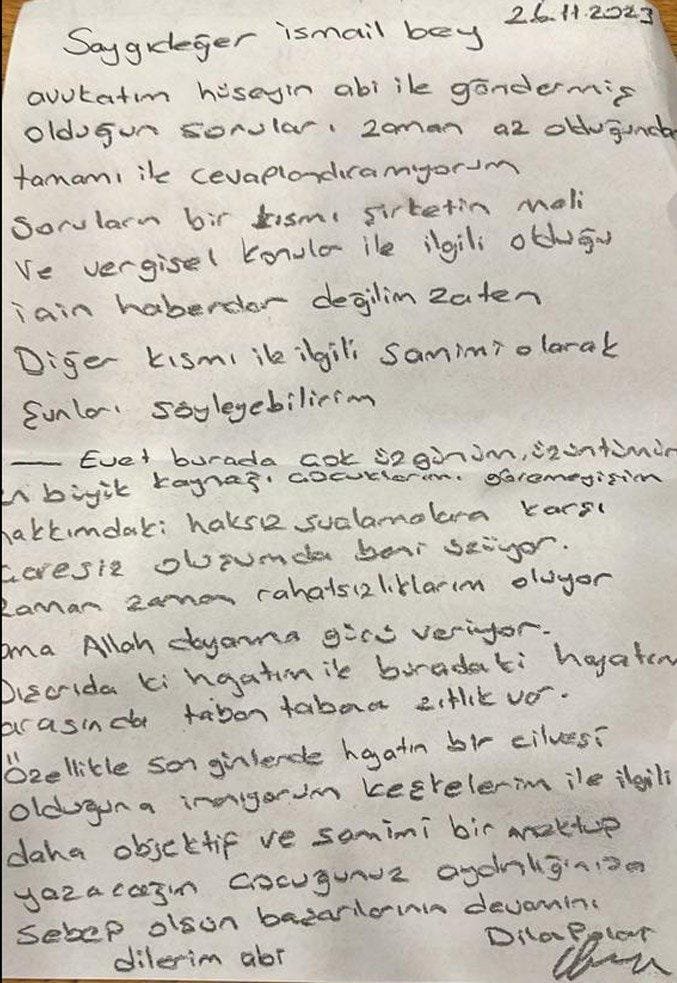 26.11.2023
Saygıdeğer ismail bey
avukatım hüseyin abi ile göndermiş
olduğun soruları zaman az olduğunda
tamamı ile cevaplandıramıyorum
Soruların bir kısmı şirketin mali
ve vergisel konular ile ilgili olduğu
için haberdar değilim zaten
Diğer kısmı ile ilgili samimi olarak
Şunları söyleyebilirim
— Evet burada çok üzgünüm, üzüntümün
en büyük kaynağı çocuklarımı göremeyişim
hakkımdaki haksız suçlamalara karşı
çaresiz oluşumda beni üzüyor.
zaman zaman rahatsızlıklarım oluyor
ama Allah dayanma gücü veriyor.
Dışarıda ki hayatım ile buradaki hayatım
arasında taban tabana zıtlık var.
Özellikle son günlerde hayatın bir cilvesi
olduğuna inanıyorum keşkelerim ile ilgili
daha objektif ve samimi bir mektup
yazacağım çocuğunuz aydınlığınıza
Sebep olsun başarılarının devamını
dilerim abi
Dila Polat